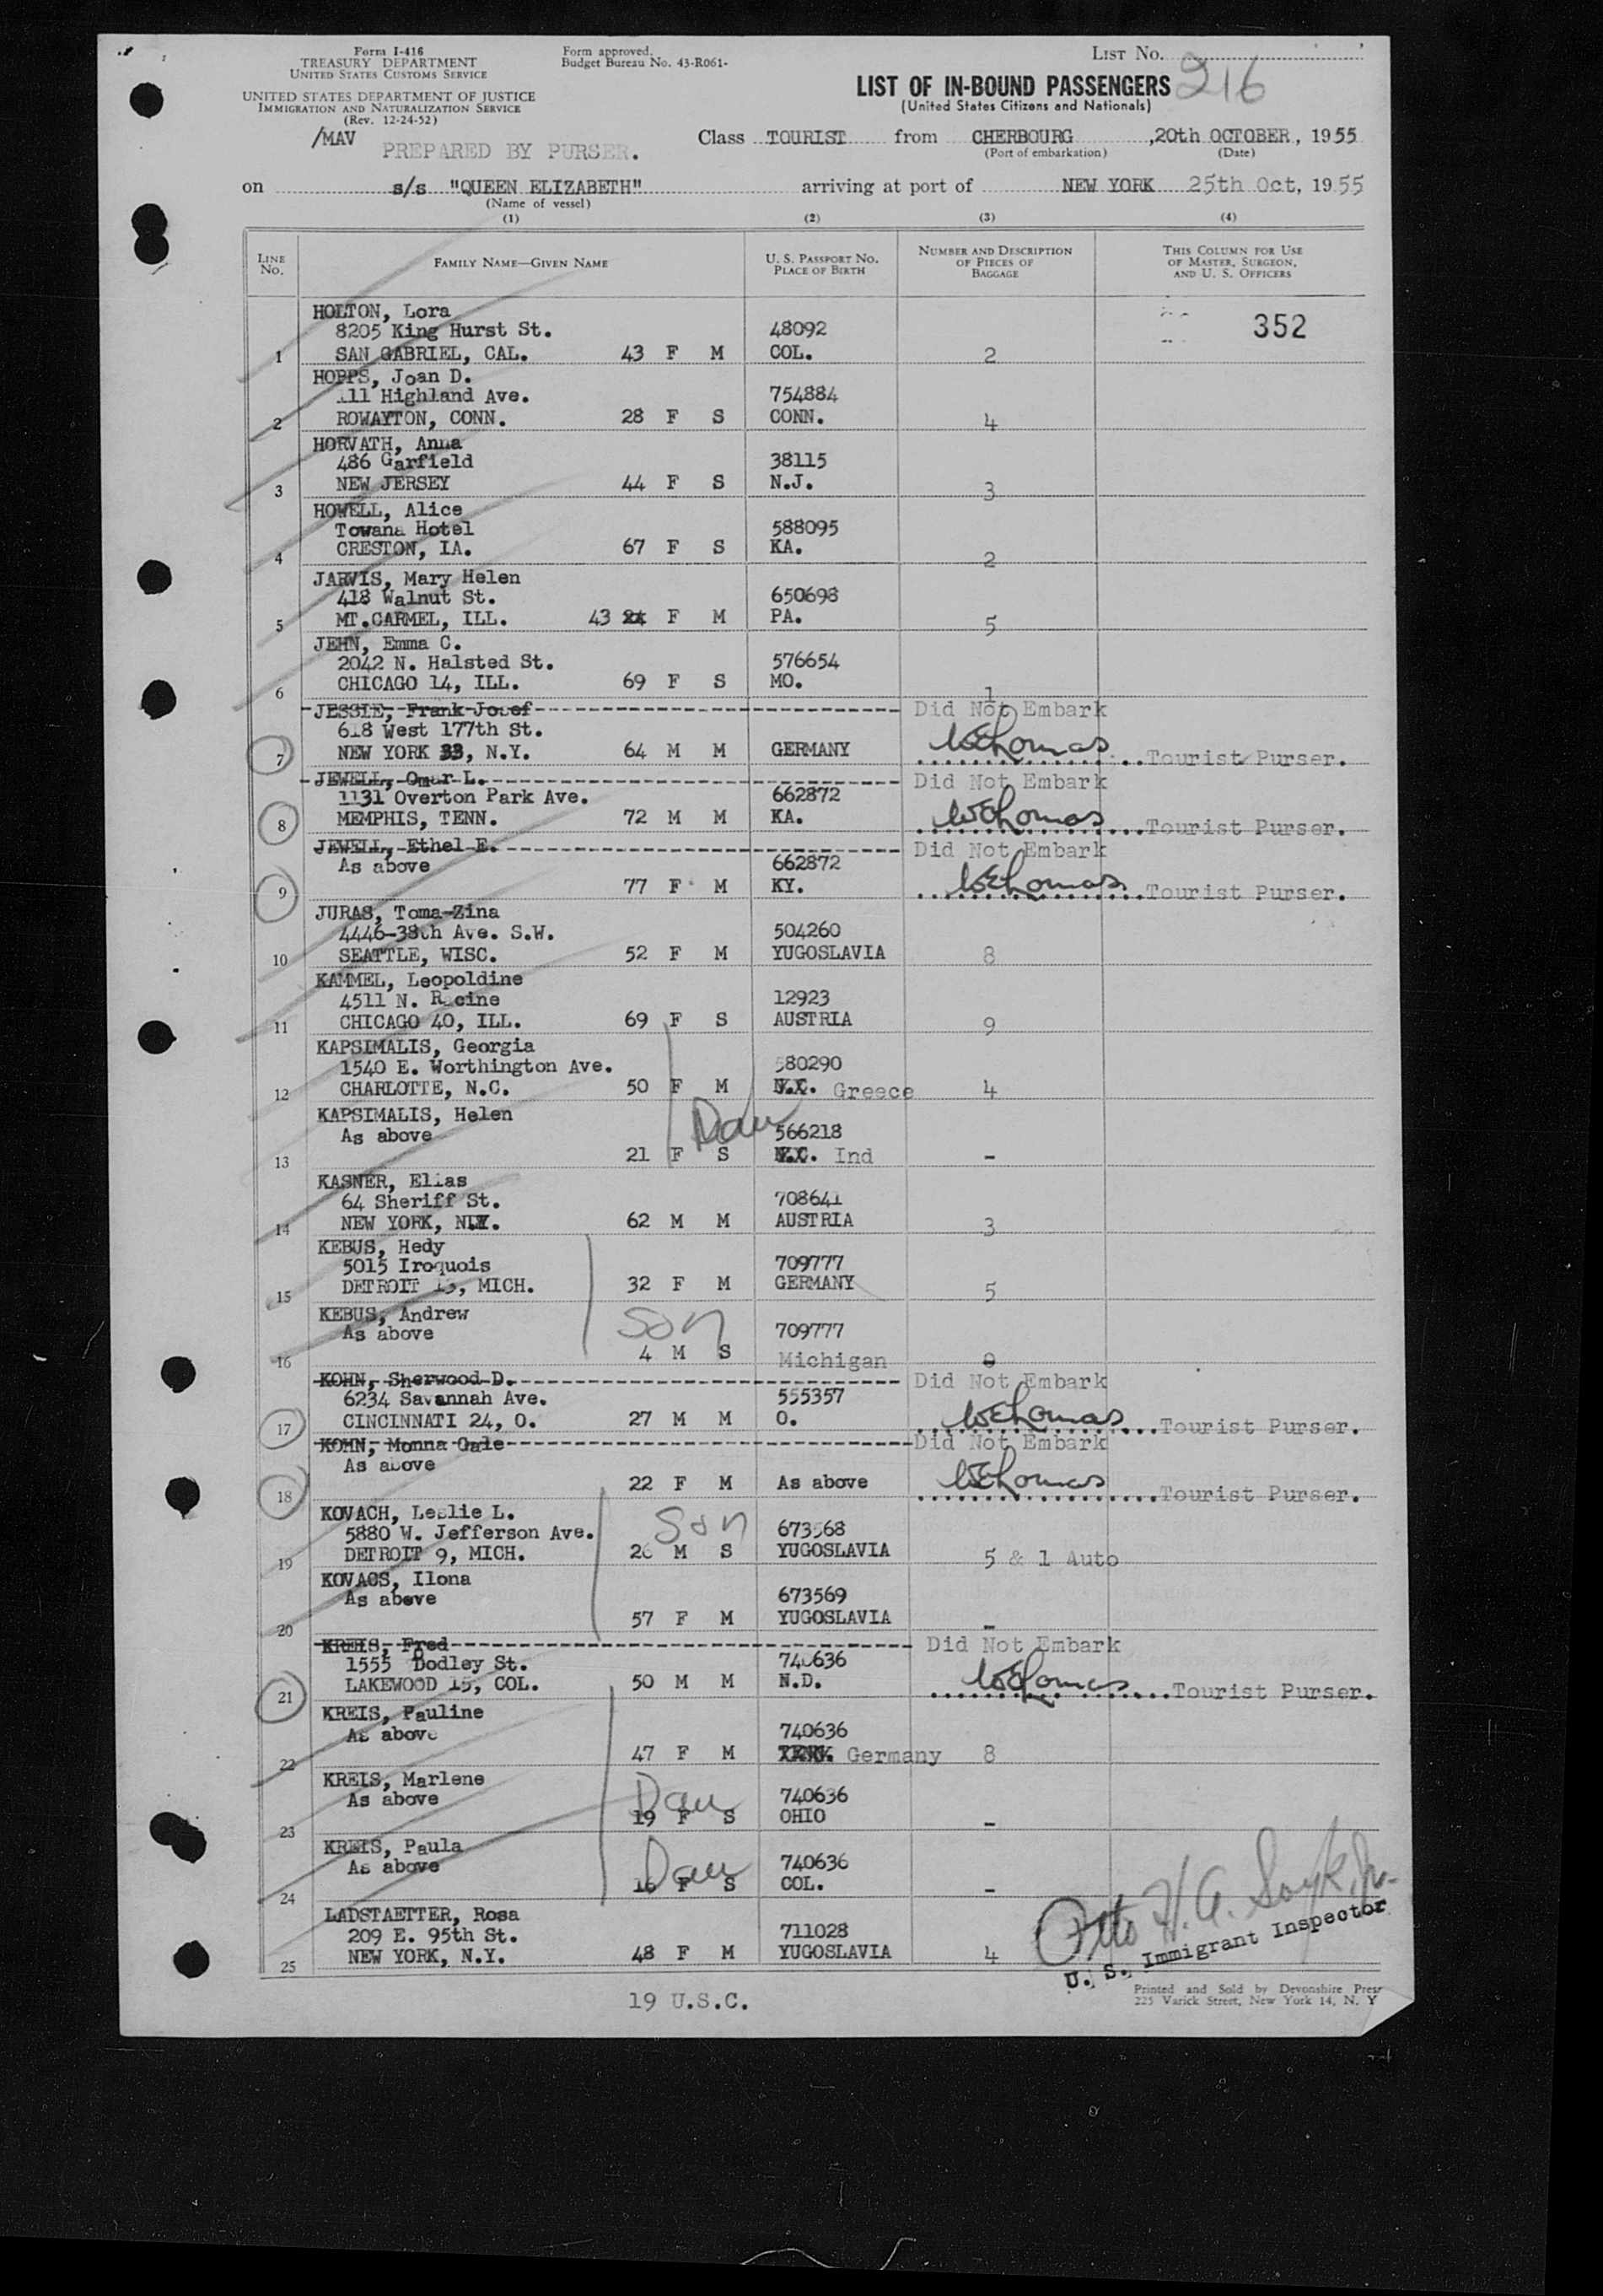 Form I-416
TREASURY DEPARTMENT
UNITED STATES CUSTOMS SERVICE
UNITED STATES DEPARTMENT OF JUSTICE
IMMIGRATION AND NATURALIZATION SERVICE
(Rev. 12-24-52)
Form approved.
Budget Bureau No. 43-R061-
LIST No.
216
LIST OF IN-BOUND PASSENGERS
(United States Citizens and Nationals)
/MAV
PREPARED BY PURSER.
Class TOURIST from CHERBOURG, 20th OCTOBER, 1955
(Port of embarkation) (Date)
on s/s "QUEEN ELIZABETH" arriving at port of NEW YORK 25th Oct, 1955
(Name of vessel)
(1) (2) (3) (4)
LINE No. FAMILY NAME—GIVEN NAME U. S. PASSPORT No. PLACE OF BIRTH NUMBER AND DESCRIPTION OF PIECES OF BAGGAGE THIS COLUMN FOR USE OF MASTER, SURGEON, AND U. S. OFFICERS
HOLTON, Lora
8205 King Hurst St. 48092 352
1 SAN GABRIEL, CAL. 43 F M COL. 2
HOPPS, Joan D.
11 Highland Ave. 754884
2 ROWAYTON, CONN. 28 F S CONN. 4
HORVATH, Anna
486 Garfield 38115
3 NEW JERSEY 44 F S N.J. 3
HOWELL, Alice
Towana Hotel 588095
4 CRESTON, IA. 67 F S KA. 2
JARVIS, Mary Helen
418 Walnut St. 650698
5 MT.CARMEL, ILL. 43 F M PA. 5
JEHN, Emma C.
2042 N. Halsted St. 576654
6 CHICAGO 14, ILL. 69 F S MO. 1
JESSIE, Frank Josef Did Not Embark
618 West 177th St.
7 NEW YORK 33, N.Y. 64 M M GERMANY WEThomas Tourist Purser.
JEWELL, Omar L. Did Not Embark
1131 Overton Park Ave. 662872
8 MEMPHIS, TENN. 72 M M KA. WEThomas Tourist Purser.
JEWELL, Ethel E. Did Not Embark
As above 662872
9 77 F M KY. WEThomas Tourist Purser.
JURAS, Toma-Zina
4446-38th Ave. S.W. 504260
10 SEATTLE, WISC. 52 F M YUGOSLAVIA 8
KAMMEL, Leopoldine
4511 N. Racine 12923
11 CHICAGO 40, ILL. 69 F S AUSTRIA 9
KAPSIMALIS, Georgia
1540 E. Worthington Ave. 580290
12 CHARLOTTE, N.C. 50 F M Greece 4
KAPSIMALIS, Helen Dau
As above 566218
13 21 F S Ind -
KASNER, Elias
64 Sheriff St. 708641
14 NEW YORK, N.Y. 62 M M AUSTRIA 3
KEBUS, Hedy
5015 Iroquois 709777
15 DETROIT 13, MICH. 32 F M GERMANY 5
KEBUS, Andrew Son
As above 709777
16 4 M S Michigan 0
KOHN, Sherwood D. Did Not Embark
6234 Savannah Ave. 555357
17 CINCINNATI 24, O. 27 M M O. WEThomas Tourist Purser.
KOHN, Monna Gale Did Not Embark
As above
18 22 F M As above WEThomas Tourist Purser.
KOVACH, Leslie L. Son
5880 W. Jefferson Ave. 673568
19 DETROIT 9, MICH. 26 M S YUGOSLAVIA 5 & 1 Auto
KOVACS, Ilona
As above 673569
20 57 F M YUGOSLAVIA -
KREIS, Fred Did Not Embark
1555 Dodley St. 740636
21 LAKEWOOD 15, COL. 50 M M N.D. WEThomas Tourist Purser.
KREIS, Pauline
As above 740636
22 47 F M Germany 8
KREIS, Marlene Dau
As above 740636
23 19 F S OHIO -
KREIS, Paula Dau
As above 740636
24 16 F S COL. -
LADSTAETTER, Rosa
209 E. 95th St. 711028
25 NEW YORK, N.Y. 48 F M YUGOSLAVIA 4
Otto H.A.
U. S. Immigrant Inspector
19 U.S.C.
Printed and Sold by Devonshire Press
225 Varick Street, New York 14, N. Y